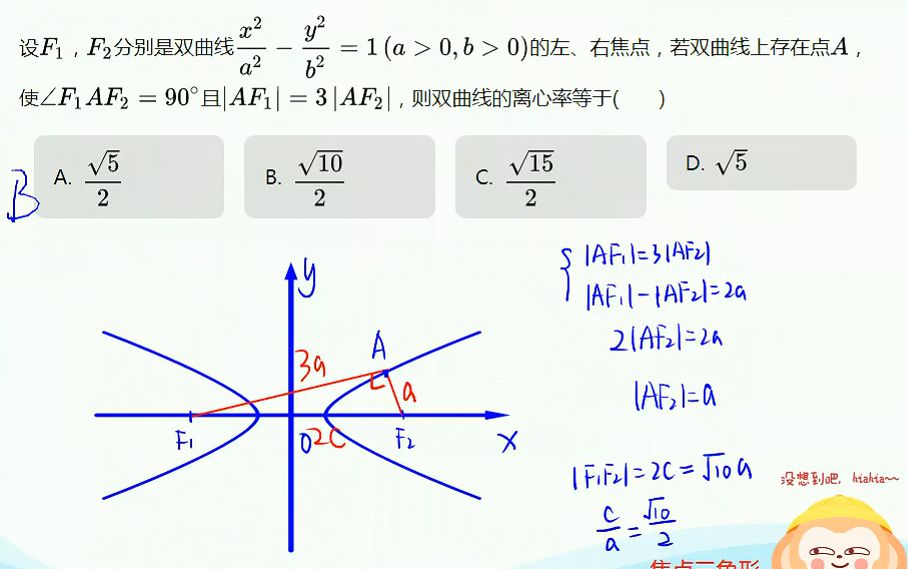 设F₁，F₂分别是双曲线x²/a² - y²/b² = 1 (a > 0, b > 0)的左、右焦点，若双曲线上存在点A，
使∠F₁AF₂ = 90°且|AF₁| = 3|AF₂|，则双曲线的离心率等于( )
B
A. √5/2
B. √10/2
C. √15/2
D. √5
y
A
3a
a
F₁
O
2C
F₂
X
{ |AF₁|=3|AF₂|
|AF₁|-|AF₂|=2a
2|AF₂|=2a
|AF₂|=a
|F₁F₂|=2C=√10a
c/a=√10/2
没想到吧，hiahia~~
焦点三角形